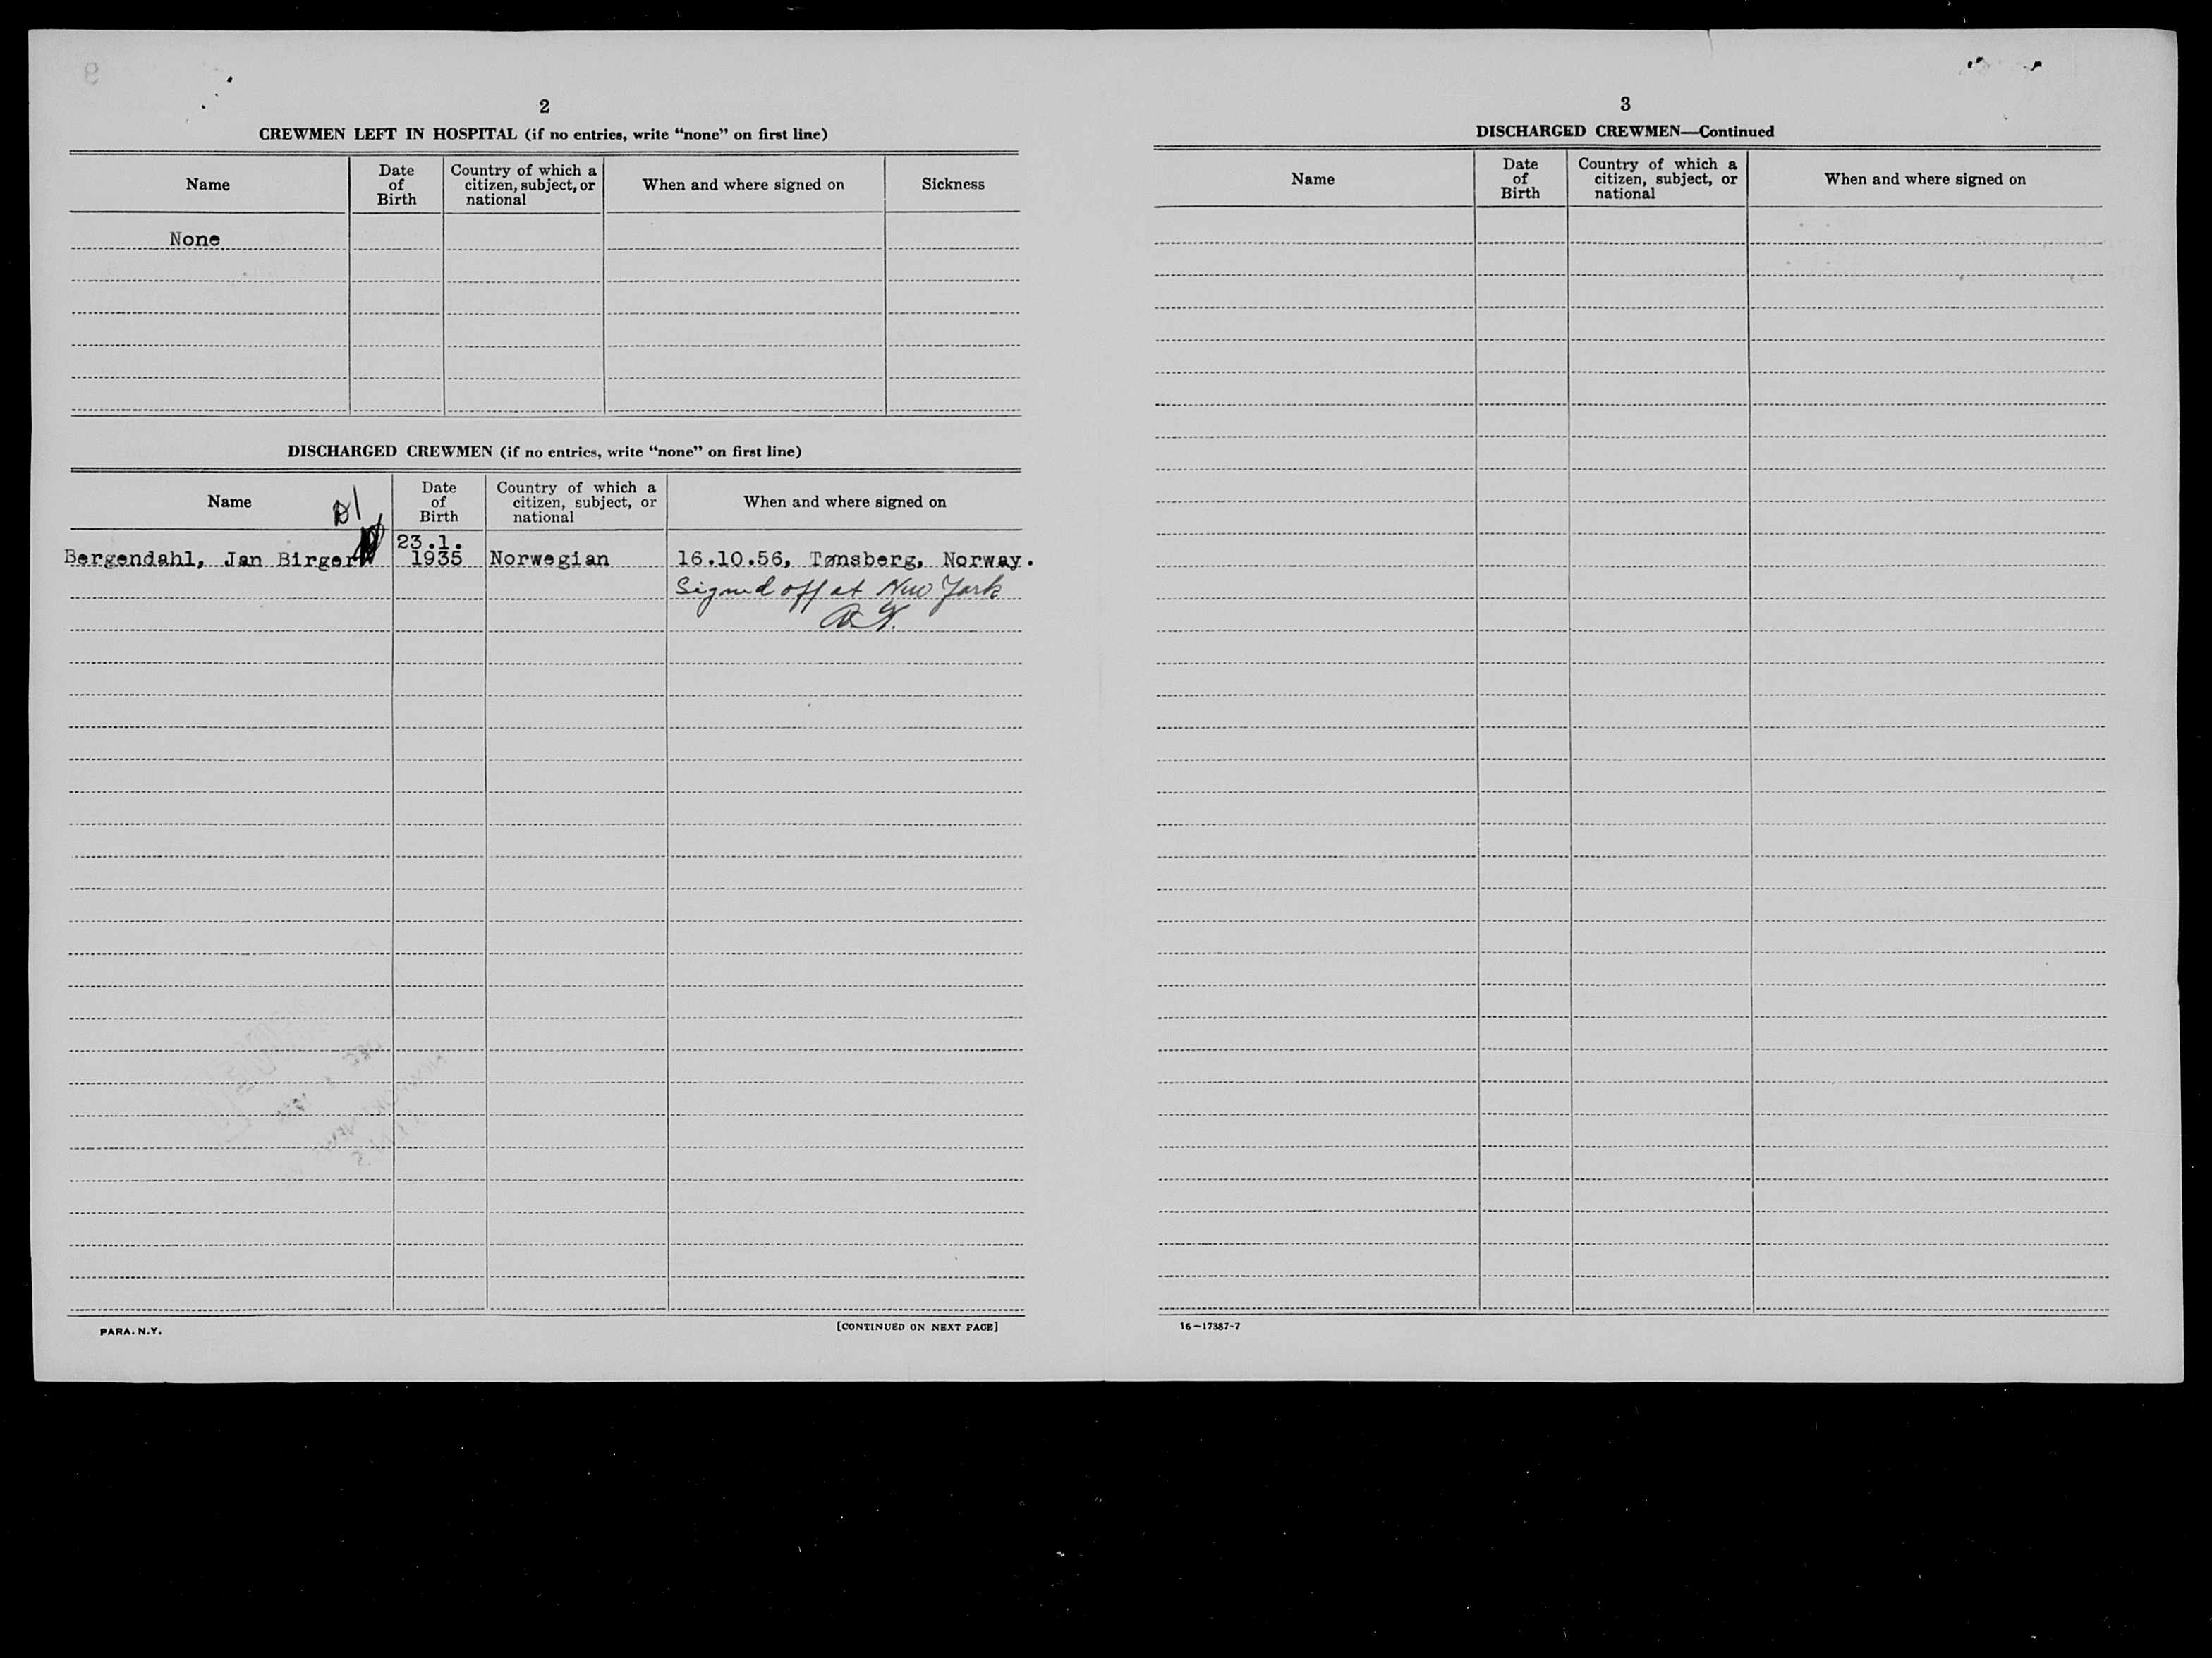 2
CREWMEN LEFT IN HOSPITAL (if no entries, write “none” on first line)
Name
Date of Birth
Country of which a citizen, subject, or national
When and where signed on
Sickness
None
DISCHARGED CREWMEN (if no entries, write “none” on first line)
Name
Date of Birth
Country of which a citizen, subject, or national
When and where signed on
23.1.
Bergendahl, Jan Birger 1935 Norwegian 16.10.56, Tønsberg, Norway.
Signed off at New York
PARA. N.Y.
[CONTINUED ON NEXT PAGE]
3
DISCHARGED CREWMEN—Continued
Name
Date of Birth
Country of which a citizen, subject, or national
When and where signed on
16—17387-7